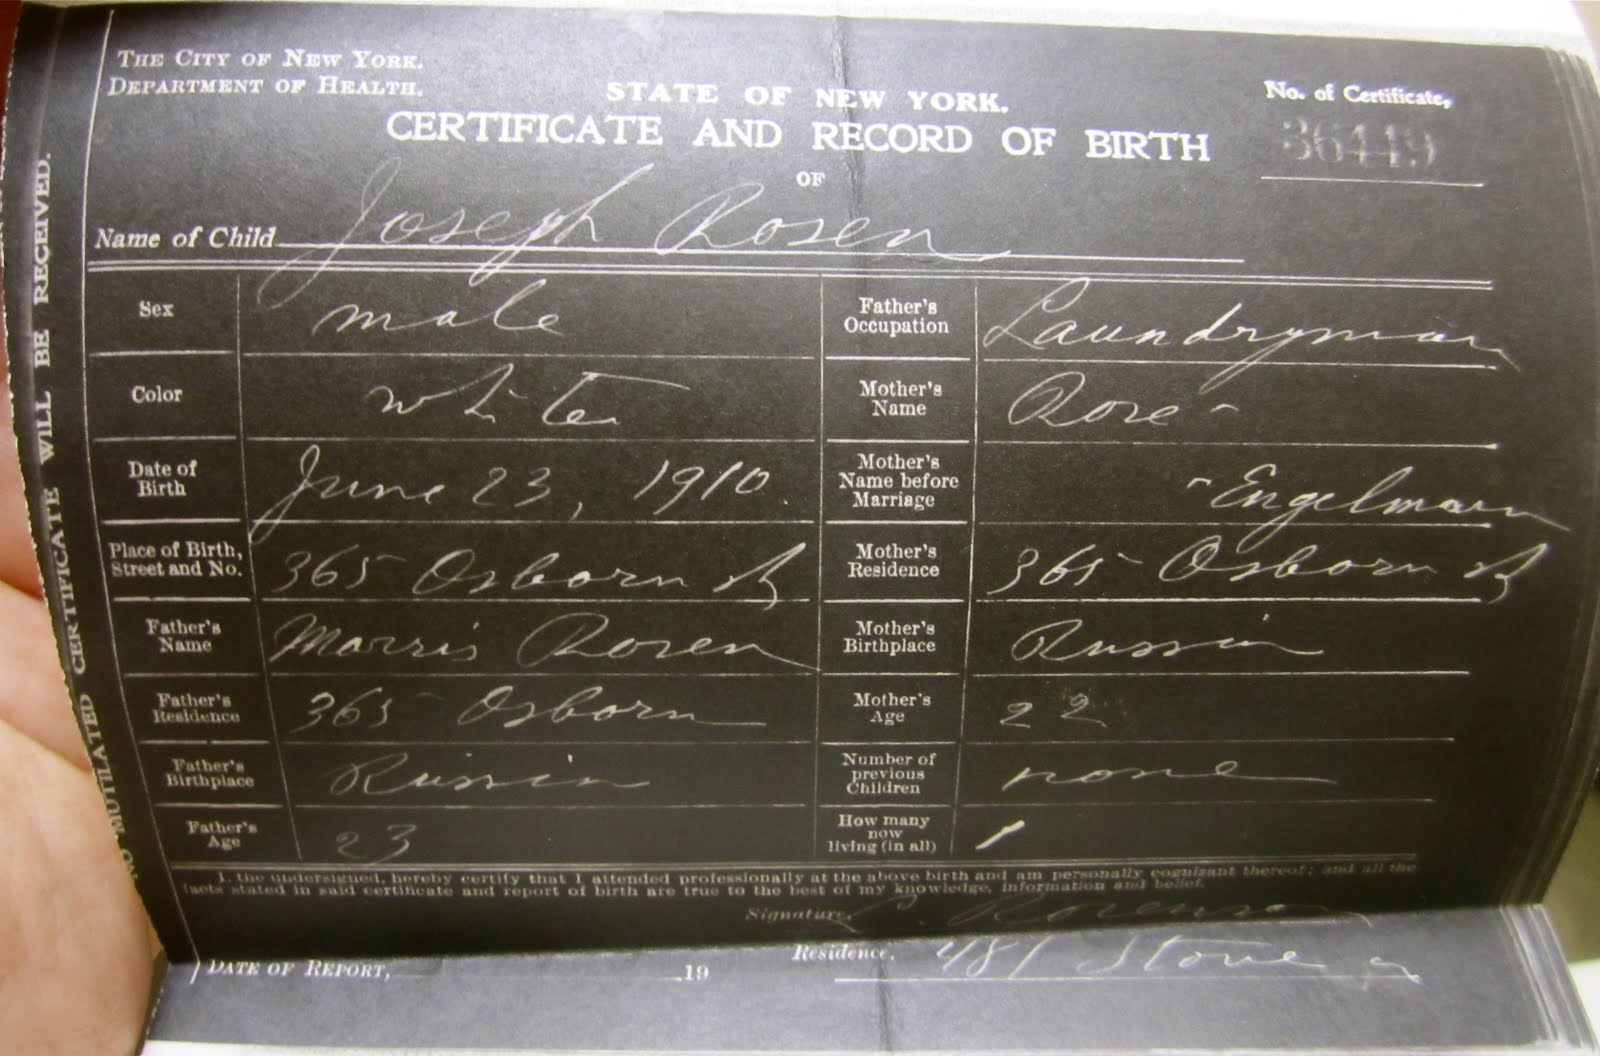 THE CITY OF NEW YORK.
DEPARTMENT OF HEALTH.
STATE OF NEW YORK.
CERTIFICATE AND RECORD OF BIRTH
OF
No. of Certificate,
36449
Name of Child Joseph Rosen
Sex male
Color white
Date of Birth June 23, 1910.
Place of Birth, Street and No. 365 Osborn St
Father's Name Morris Rosen
Father's Residence 365 Osborn
Father's Birthplace Russia
Father's Age 23
Father's Occupation Laundryman
Mother's Name Rose
Mother's Name before Marriage Engelmann
Mother's Residence 365 Osborn St
Mother's Birthplace Russia
Mother's Age 22
Number of previous Children none
How many now living (in all) 1
I, the undersigned, hereby certify that I attended professionally at the above birth and am personally cognizant thereof; and all the
facts stated in said certificate and report of birth are true to the best of my knowledge, information and belief.
Signature,
Residence. 481 Stone
DATE OF REPORT, 19
NO MUTILATED CERTIFICATE WILL BE RECEIVED.